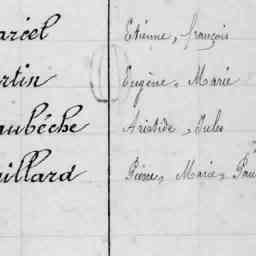 arcel Etienne, françois
rtin Eugène, Marie
aubêche Aristide, Jules
aillard Pierre, Marie, Pau